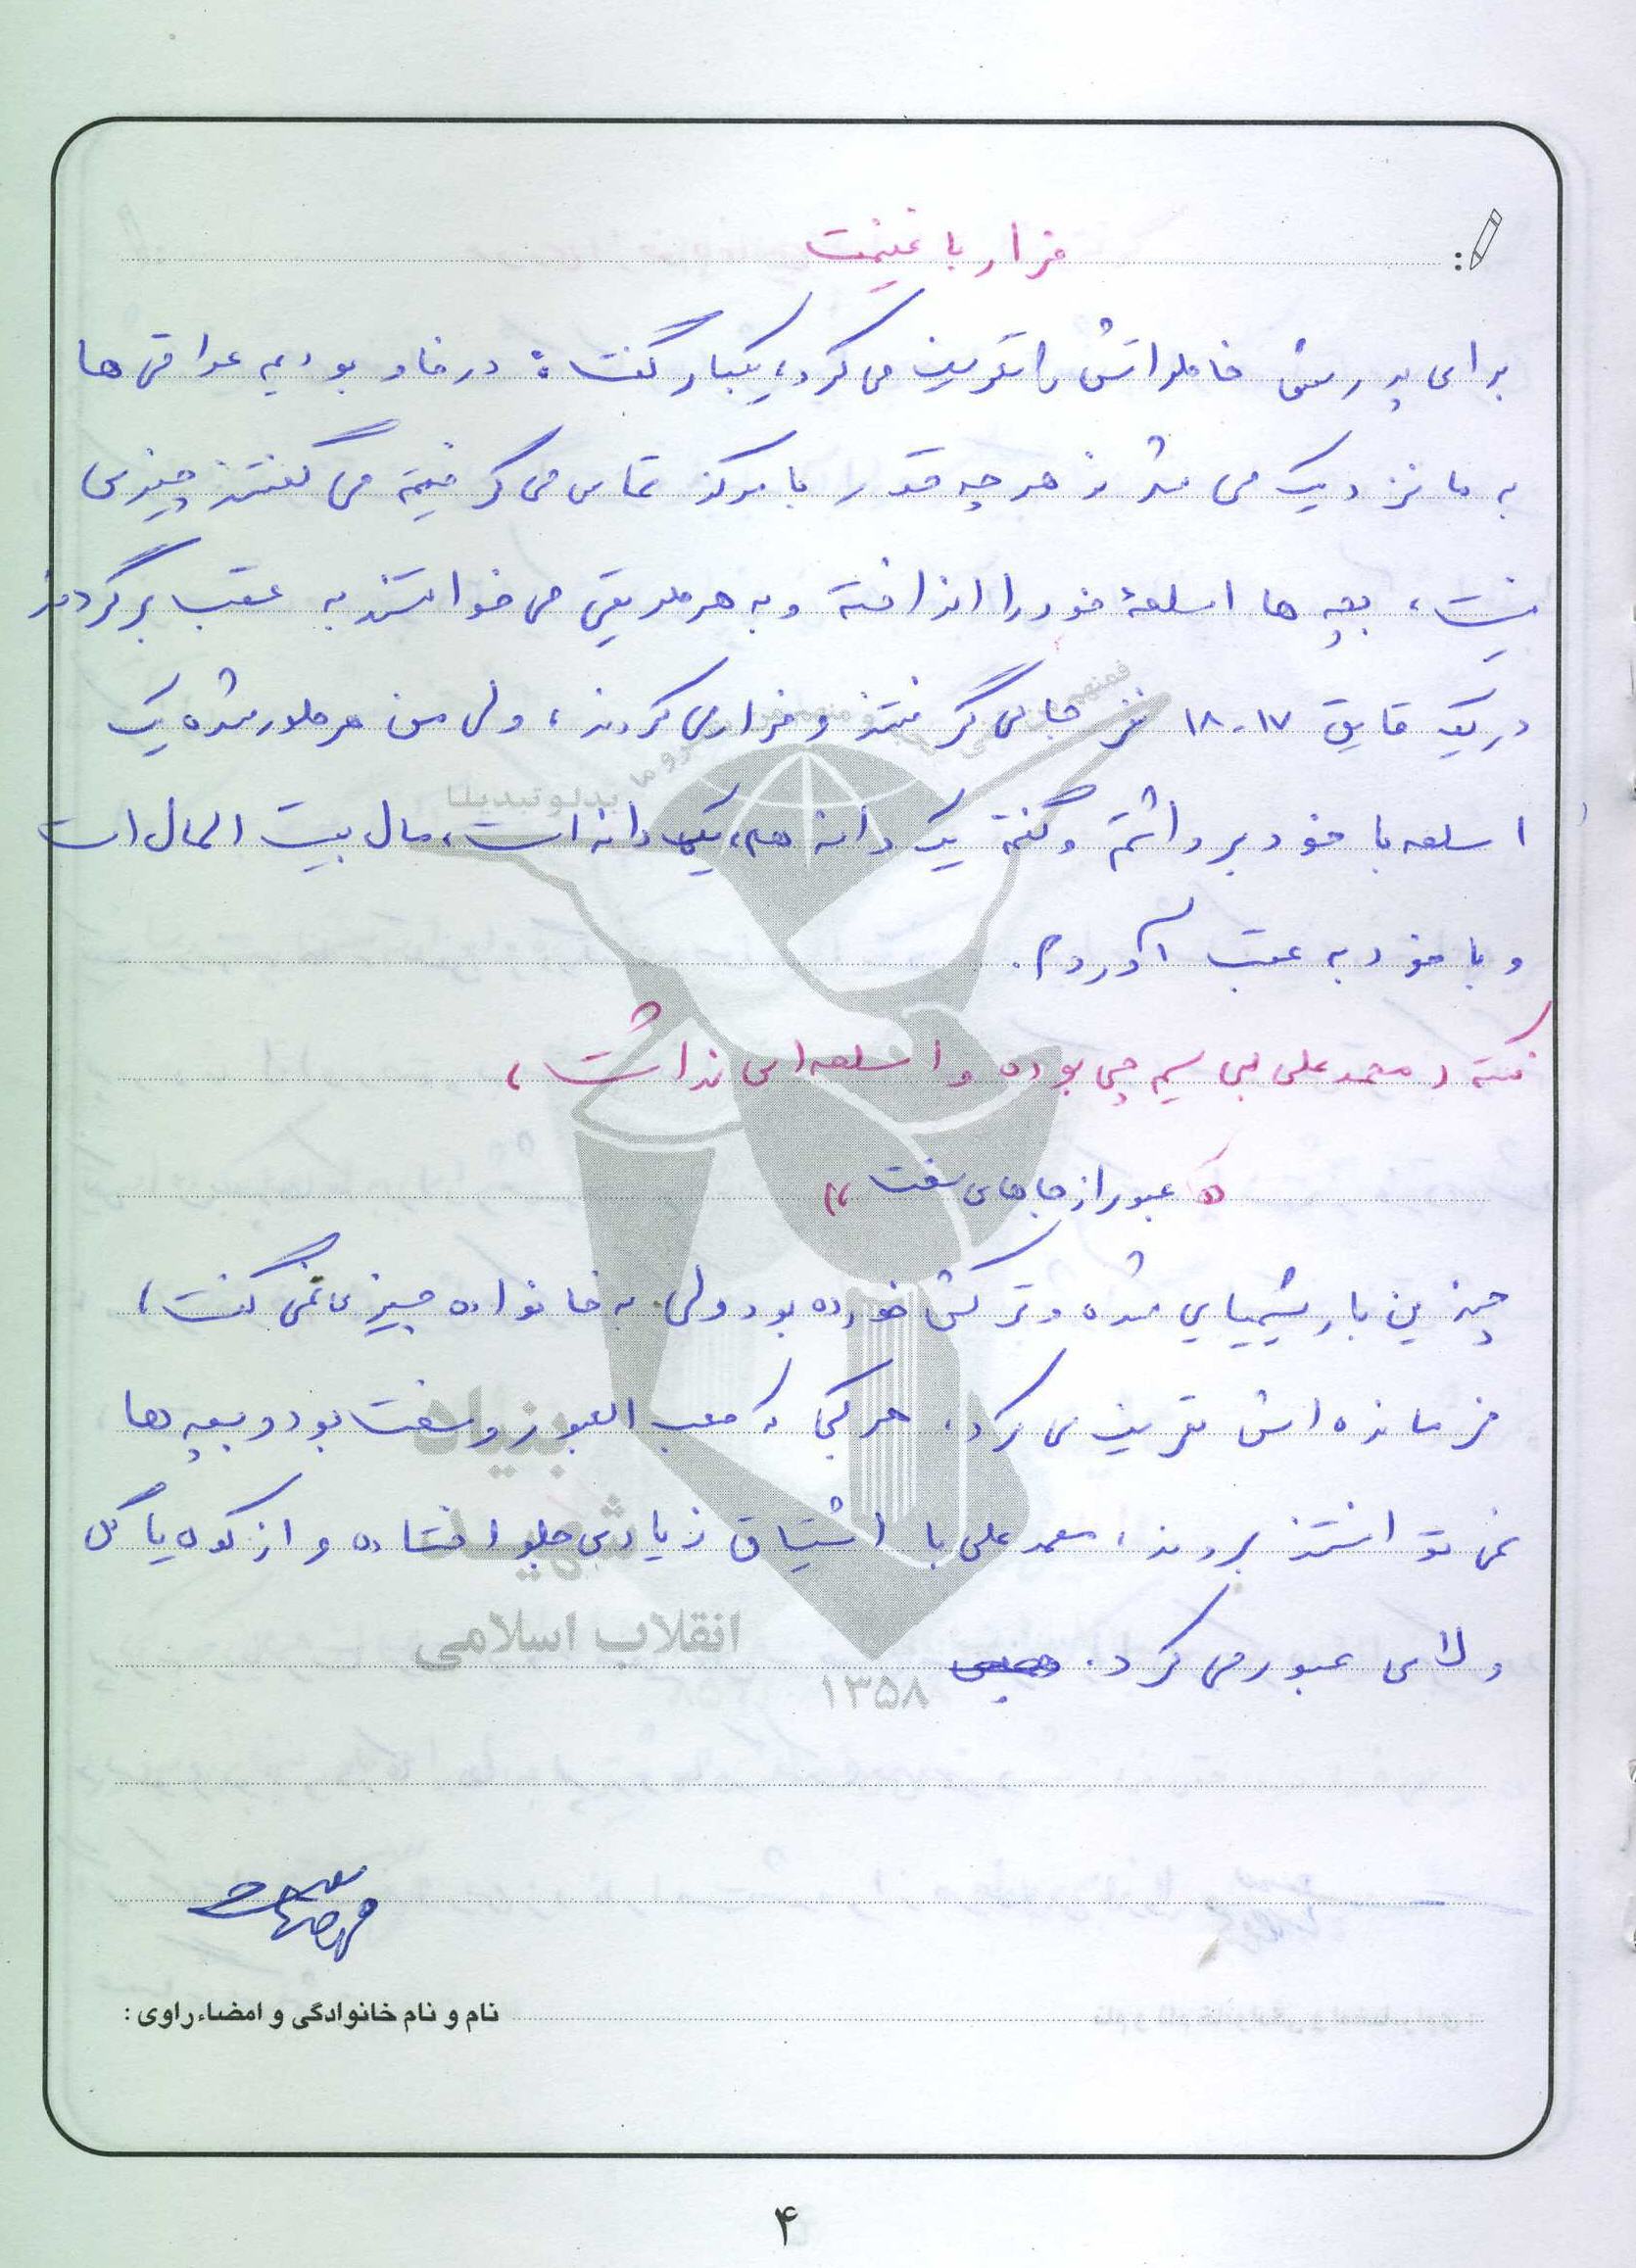 فرار با غنیمت
برای پدرش خاطراتش را تعریف می کرد، یکبار گفت: در فاو بودیم عراقی ها
به ما نزدیک می شدند هر چه قدر با مرکز تماس می گرفتیم می گفتند چیزی
نیست، بچه ها اسلحۀ خود را انداخته و به هر طریقی می خواستند به عقب برگردند
در یک قایق ۱۷-۱۸ نفر جا می گرفتند و فرار می کردند، ولی من هر طور شده یک
اسلحه با خود برداشتم و گفتم یک دانه هم، یک دانه است، مال بیت المال است
و با خود به عقب آوردم.
نکته (محمد علی بی سیم چی بوده و اسلحه ای نداشت)
«عبور از جاهای سخت»
چندین بار شیمیایی شده و ترکش خورده بود ولی به خانواده چیزی نمی گفت،
فرمانده اش تعریف می کرد، هر کجا که صعب العبور و سخت بود و بچه ها
نمی توانستند بروند، محمد علی با اشتیاق زیادی جلو افتاده و از کوه یا گل
و لای عبور می کرد.
نام و نام خانوادگی و امضاء راوی:
بنیاد
شهید
انقلاب اسلامی
۱۳۵۸
۴